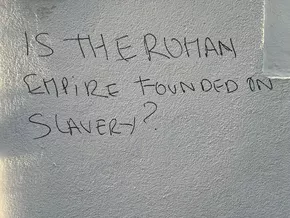 IS THE ROMAN
EMPIRE FOUNDED ON
SLAVERY?